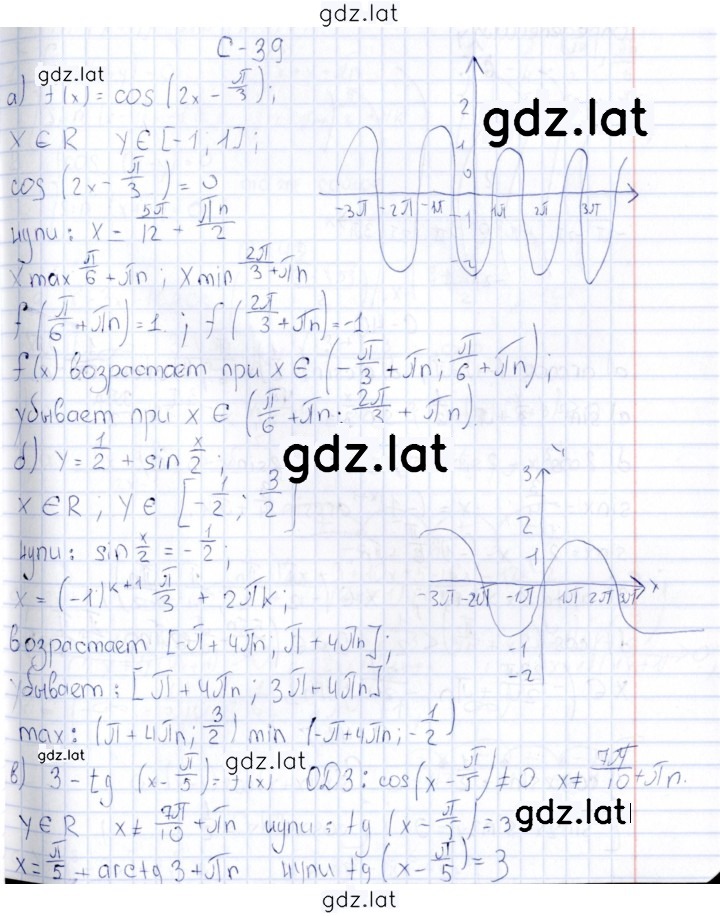 gdz.lat
С-39
gdz.lat
а) f(x) = cos (2x - π/3);
gdz.lat
x ∈ R y ∈ [-1; 1];
cos (2x - π/3) = 0
нули: x = 5π/12 + πn/2
x max π/6 + πn; x min 2π/3 + πn
f(π/6 + πn) = 1; f(2π/3 + πn) = -1
f(x) возрастает при x ∈ (-π/3 + πn; π/6 + πn);
убывает при x ∈ (π/6 + πn; 2π/3 + πn)
2
1
0
-3π -2π -1π 1π 2π 3π
-1
-2
б) y = 1/2 + sin x/2;
gdz.lat
x ∈ R; y ∈ [-1/2; 3/2]
нули: sin x/2 = -1/2;
x = (-1)^k+1 π/3 + 2πk;
возрастает [-π + 4πn; π + 4πn];
убывает: [π + 4πn; 3π + 4πn]
max: (π + 4πn; 3/2) min (-π + 4πn; -1/2)
y
3
2
1
-3π -2π -1π 1π 2π 3π x
-1
-2
gdz.lat
gdz.lat
в) 3 - tg (x - π/5) = f(x) ОДЗ: cos(x - π/5) ≠ 0 x ≠ 7π/10 + πn.
gdz.lat
y ∈ R x ≠ 7π/10 + πn нули: tg (x - π/5) = 3
x = π/5 + arctg 3 + πn нули tg (x - π/5) = 3
gdz.lat